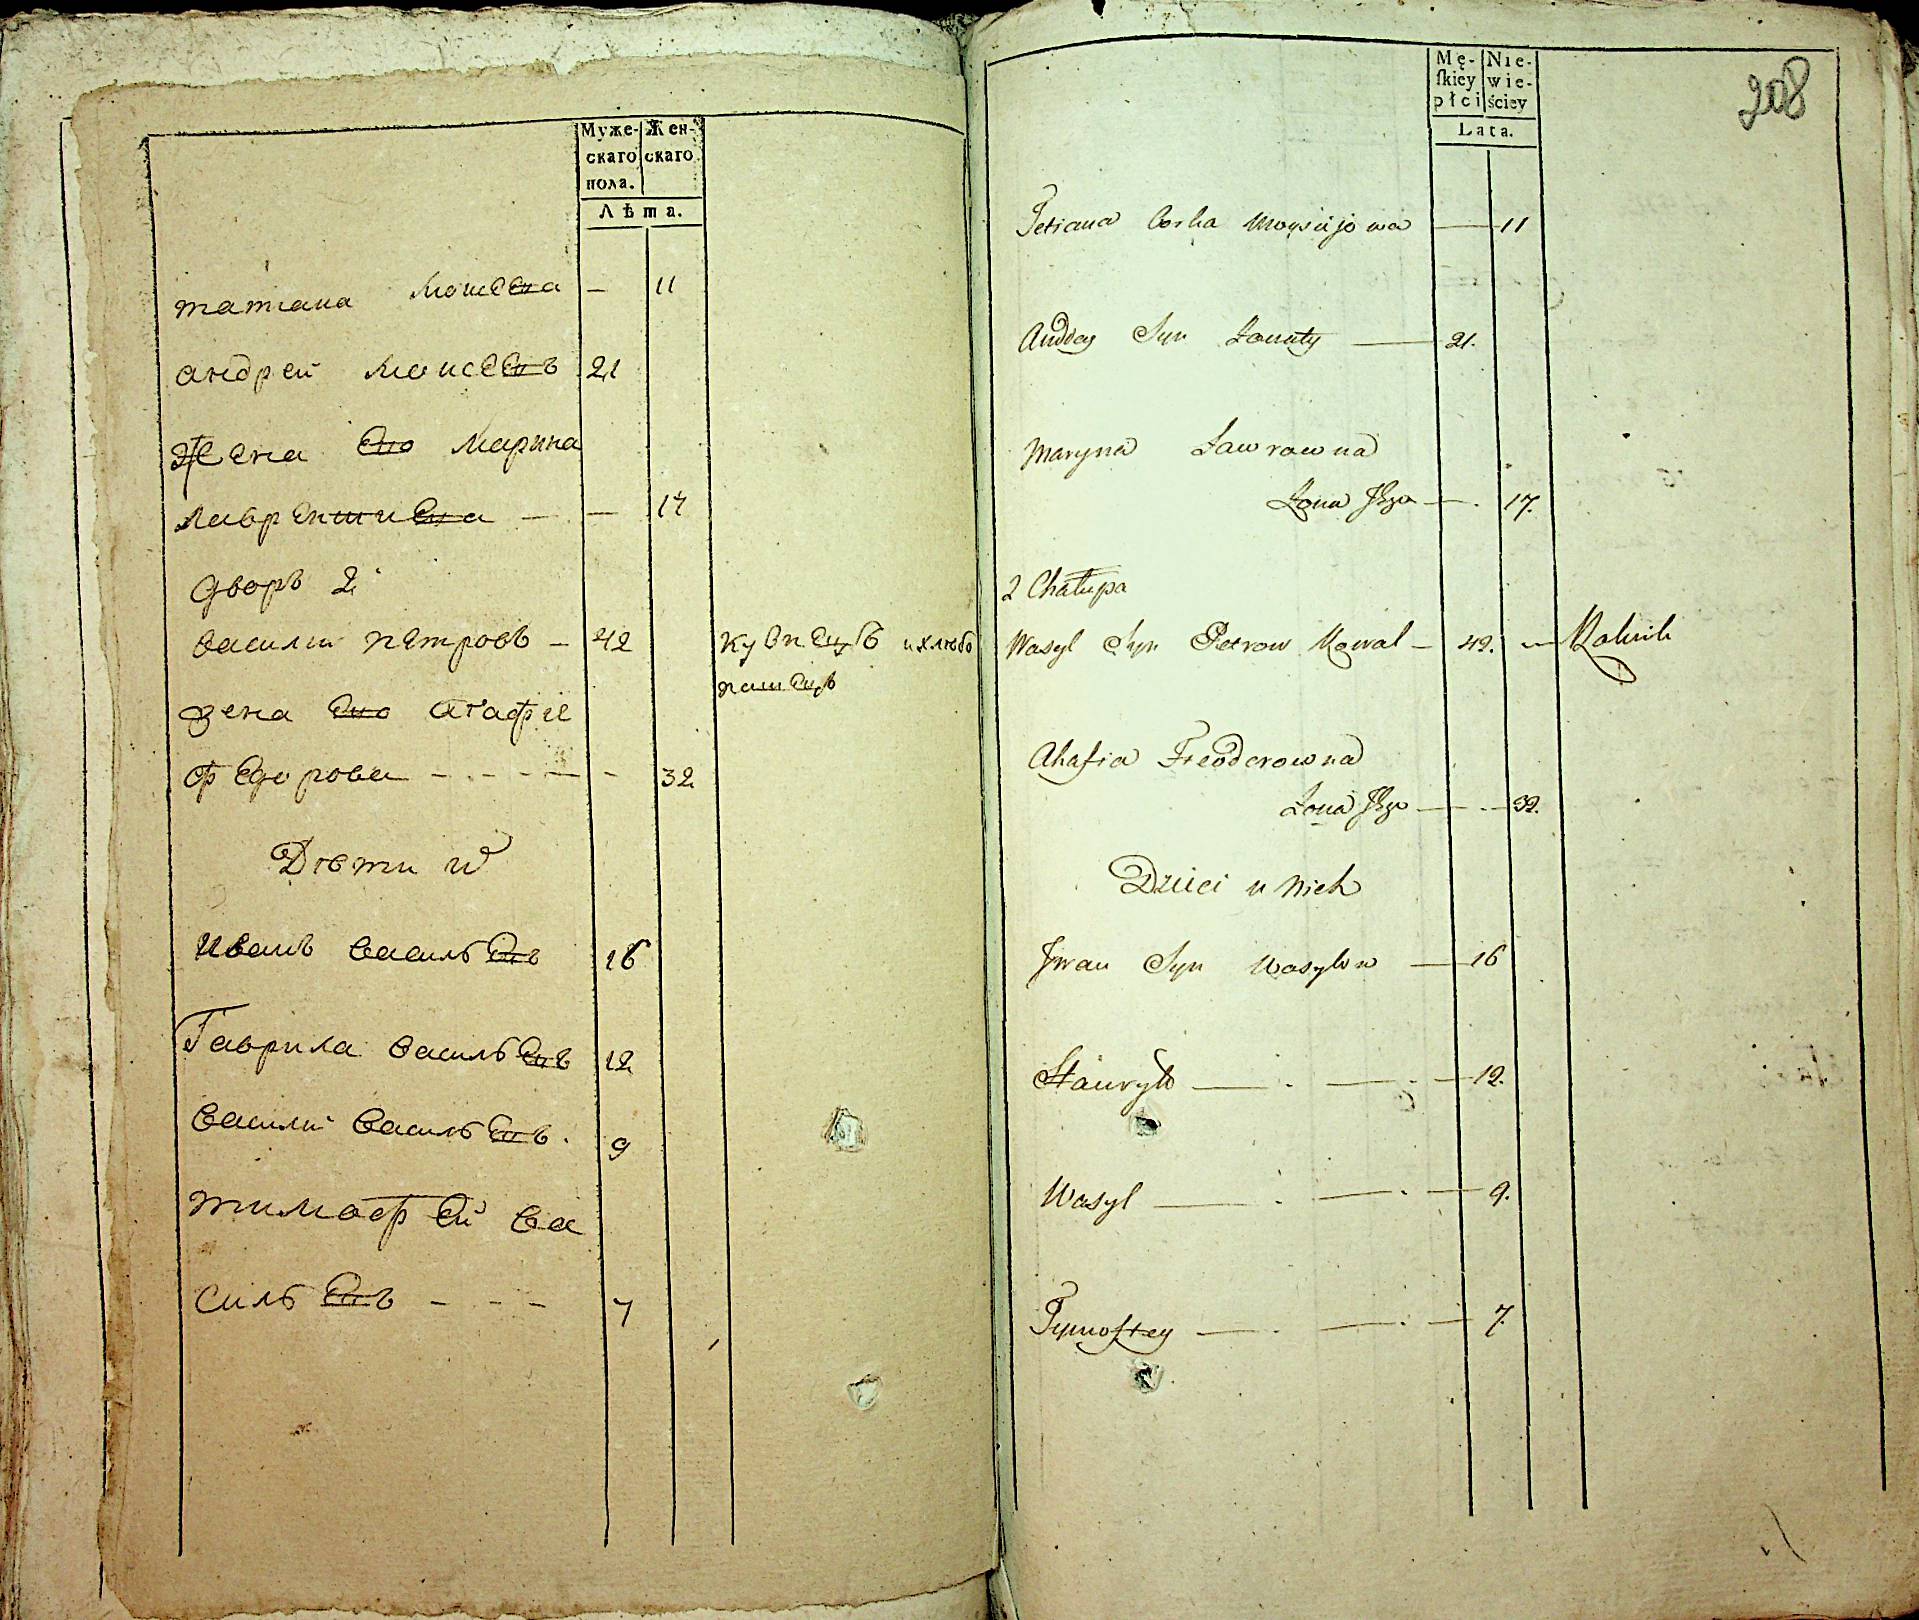 Муже- Жен-
скаго скаго
пола.
Лѣта.
татиана Моисеева — 11
андрей Моисеевъ 21
Жена Его Марина
лаврентиева — — 17
дворъ 2
василий петровъ — 42 кузнецъ и хлебо
пашецъ
зена Его агафие
федорова — — — 32
Дѣти их
иванъ василъевъ 16
Гаврила василъевъ 12
василий василъевъ. 9
тимофей ва
силъевъ — — — 7
208
Mę- Nie-
ſkiey wie-
płci ściey
Lata.
Tetiana Corka Moysiejowa — 11
Andrey Syn — 21.
Maryna Lawrowna
Żona Jego — 17.
2 Chałupa
Wasyl Syn Petrow Kowal — 42. — Rolnik
Ahafia Freodorowna
Żona Jego — 32.
Dzieci u Nich
Jwan Syn Wasylow — 16
Hauryło — 12.
Wasyl — 9.
Tymofiey — 7.